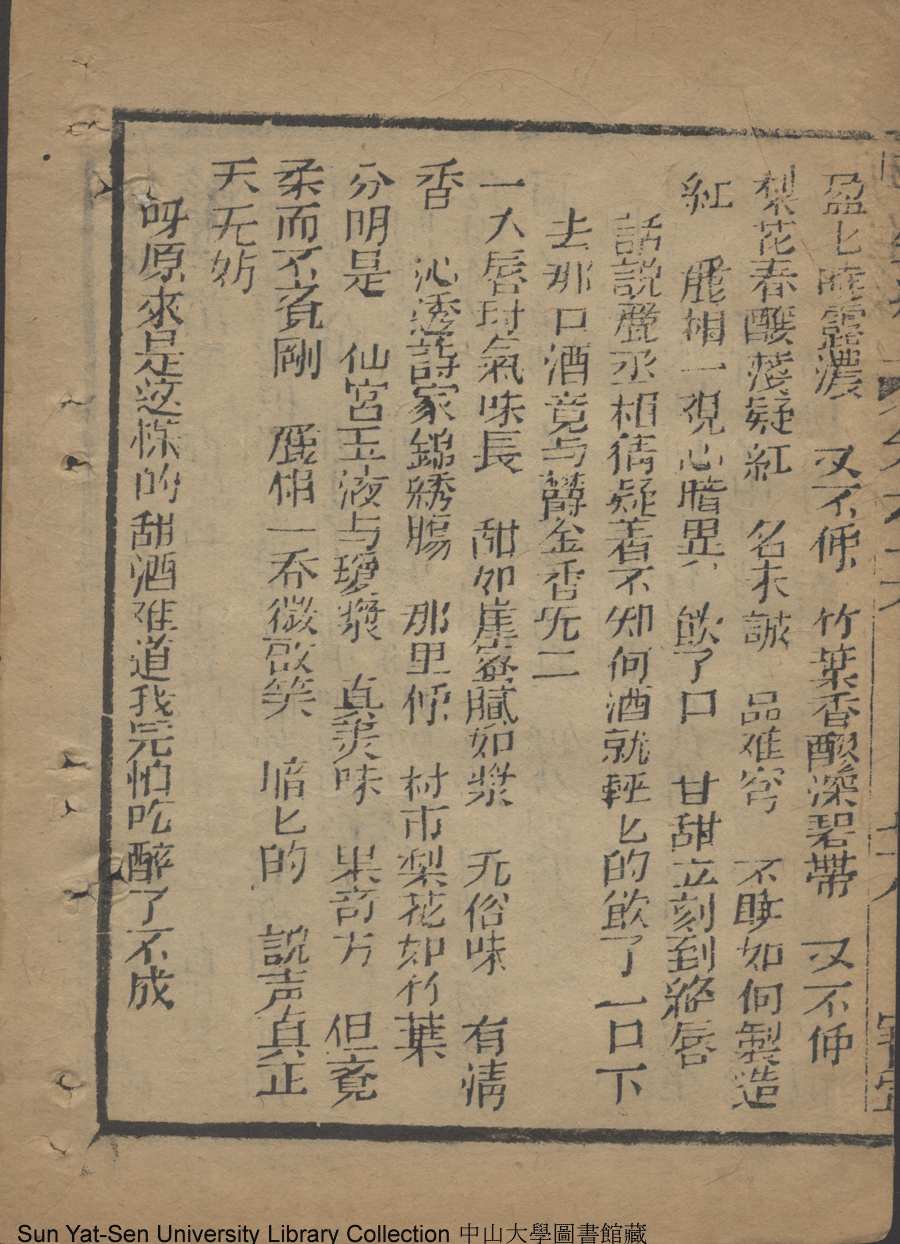 盈匕曉露濃 又不像 竹葉香醪深碧帶 又不像
梨花春釀淺疑紅 名未誠 品难穷 不曉如何製造
紅 龐相一視心暗異 飲了口 甘甜立刻到絳唇
話說龐丞相猜疑着不知何酒就輕匕的飲了一口下
去那口酒竟与欝金香无二
一入唇時氣味長 甜如崖蜜膩如漿 无俗味 有清
香 沁透詩家錦綉腸 那里像 村市梨花如竹葉
分明是 仙宮玉液与瓊漿 真美味 果奇方 但覔
柔而不覔剛 龐相一吞微啟笑 暗匕的 說声真正
天无妨
呀原來是这樣的甜酒难道我完怕吃醉了不成
Sun Yat-Sen University Library Collection 中山大學圖書館藏